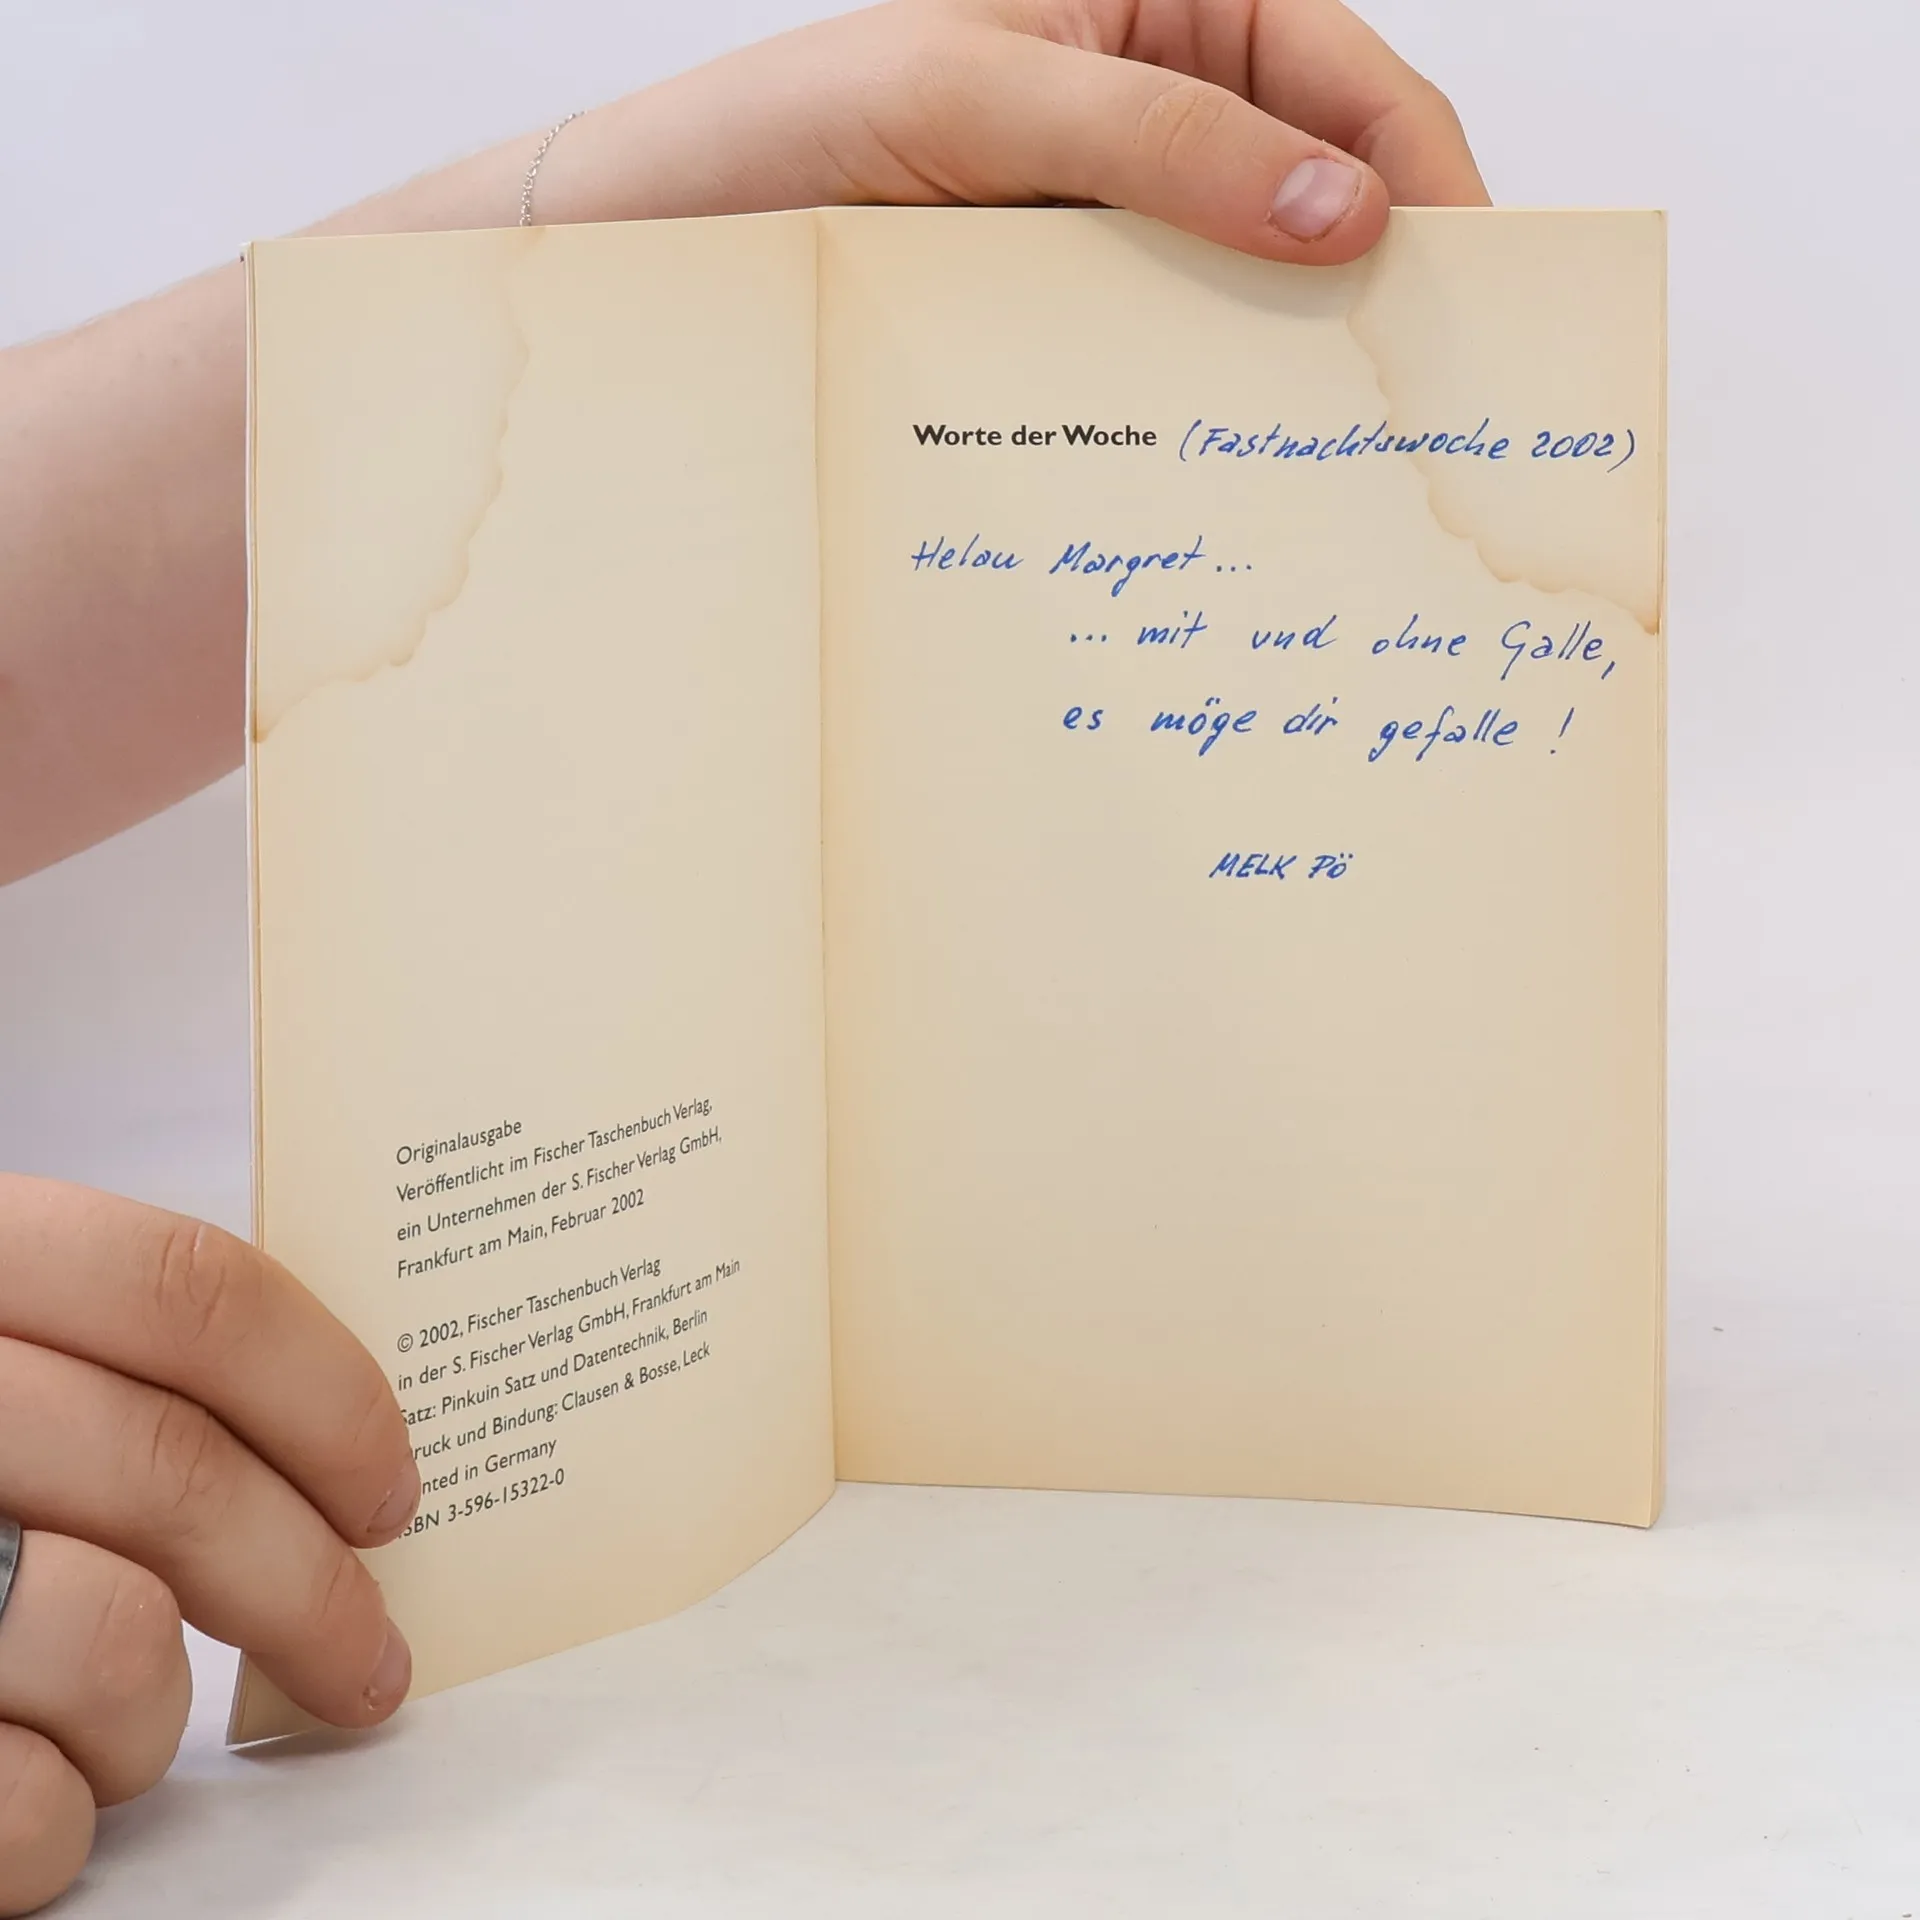 Originalausgabe
Veröffentlicht im Fischer Taschenbuch Verlag,
ein Unternehmen der S. Fischer Verlag GmbH,
Frankfurt am Main, Februar 2002
© 2002, Fischer Taschenbuch Verlag
in der S. Fischer Verlag GmbH, Frankfurt am Main
Satz: Pinkuin Satz und Datentechnik, Berlin
ruck und Bindung: Clausen & Bosse, Leck
nted in Germany
ISBN 3-596-15322-0
Worte der Woche (Fastnachtswoche 2002)
Helau Margret...
... mit und ohne Galle,
es möge dir gefalle !
MELK PÖ